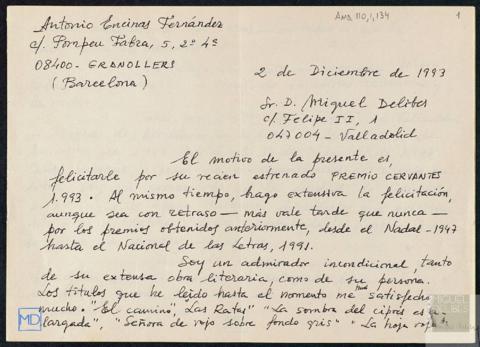 AMD 110,1,134
1
Antonio Encinas Fernández
c/. Pompeu Fabra, 5, 2º 4ª
08400-GRANOLLERS
(Barcelona)
2 de Diciembre de 1993
Sr. D. Miguel Delibes
c/. Felipe II, 1
047004-Valladolid
El motivo de la presente es,
felicitarle por su recien estrenado PREMIO CERVANTES
1.993. Al mismo tiempo, hago extensiva la felicitación,
aunque sea con retraso - más vale tarde que nunca -
por los premios obtenidos anteriormente, desde el Nadal-1947
hasta el Nacional de las Letras, 1991.
Soy un admirador incondicional, tanto
de su extensa obra literaria, como de su persona.
Los titulos que he leido hasta el momento me han satisfecho
mucho. "El camino", Las Ratas" "La sombra del ciprés es a-
largada", "Señora de rojo sobre fondo gris" "La hoja roja"
MD